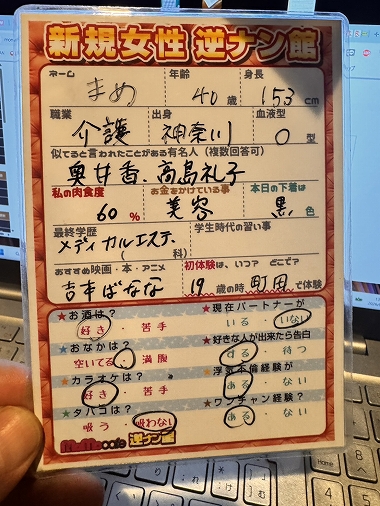 新規女性 逆ナン館
ネーム 年齢 身長
まめ 40歳 153cm
職業 出身 血液型
介護 神奈川 O型
似てると言われたことがある有名人(複数回答可)
奥井香、高島礼子
私の肉食度 お金をかけている事 本日の下着は
60% 美容 黒色
最終学歴 学生時代の習い事
メディカルエステ(科)
おすすめ映画・本・アニメ 初体験は、いつ? どこで?
吉本ばなな 19歳の時 町田で体験
★お酒は? ★現在パートナーが
好き・苦手 いる・いない
★おなかは? ★好きな人が出来たら告白
空いてる・満腹 する・待つ
★カラオケは? ★浮気不倫経験が
好き・苦手 ある・ない
★タバコは? ★ワンチャン経験?
吸う・吸わない ある・ない
MoMo cafe 逆ナン館